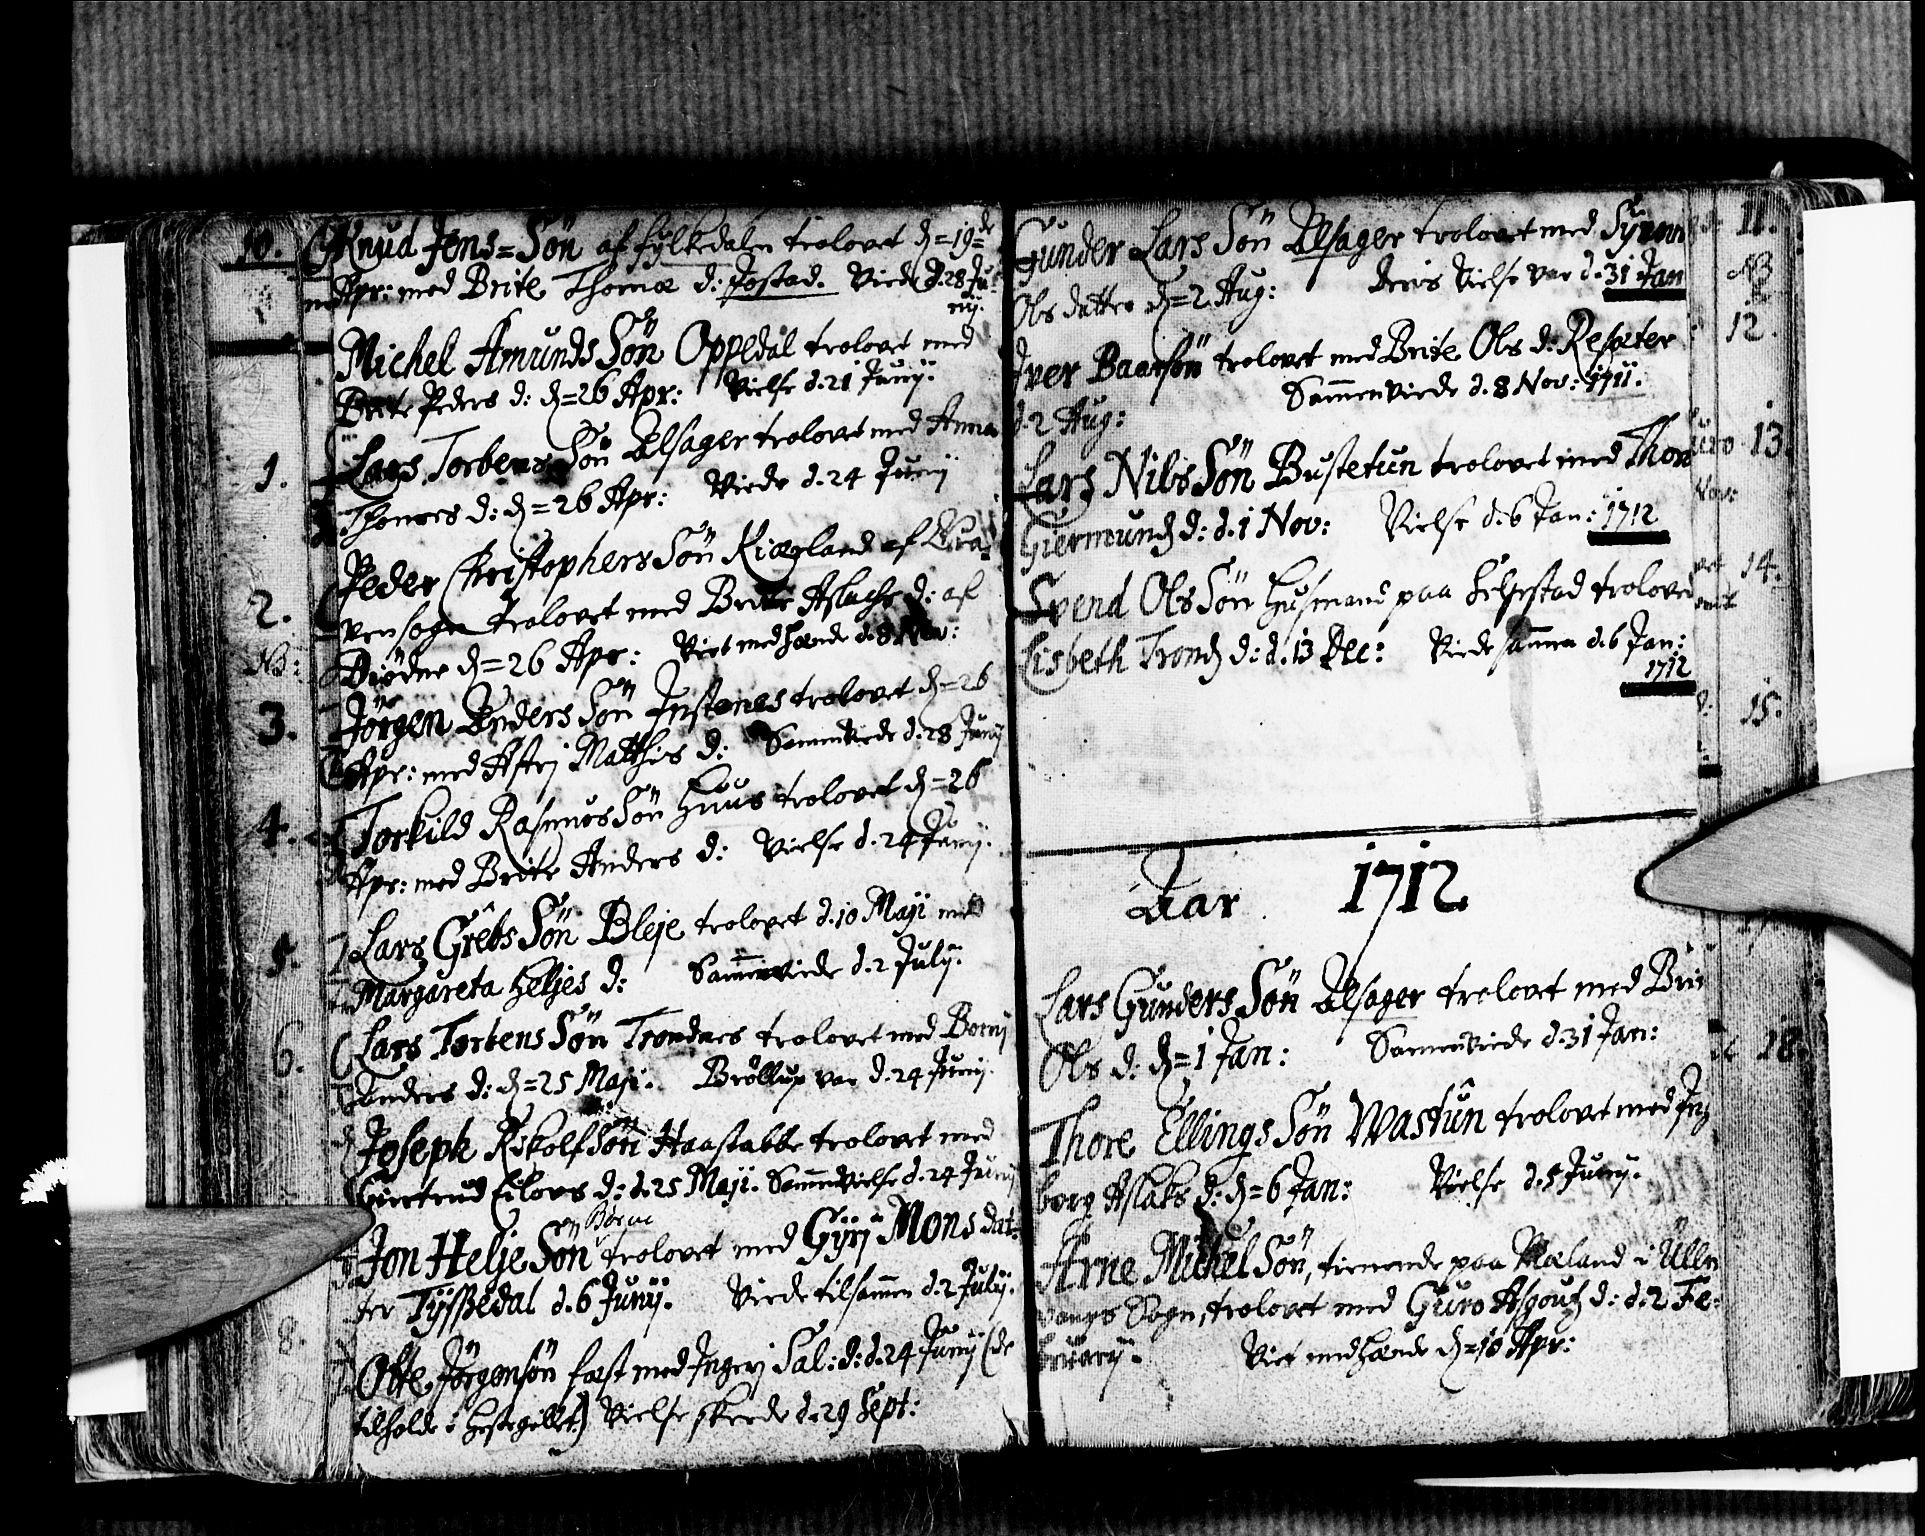 10.
Knud Jens=Søn af Fylkedalen trolovet d=19=de
Apr: med Brite Thomæ d: Jostad. Viede d.28 Ju-
nij.
Michel Amunds Søn Oppedal trolovet med
Brite Peders d: d=26 Apr: Vielse d.21 Junij.
1.
Lars Torbens Søn Alsager trolovet med Anna
Thomæs d: d=26 Apr: Viede d.24 Junij
Peder Christophers Søn Kiægland af
2.
vensogn trolovet med Brite Aslachs d: af
NB:
Diødne d=26 Apr: Viet med hende d.8 Nov:
3.
Jørgen Anders Søn Instenes trolovet d=26
Apr: med Astrj Matthis d: Sammenviede d.28 Junij
4.
Torkild Rasmus Søn Huus trolovet d=26
Apr: med Brite Anders d: Vielse d.24 Junij.
5.
Lars Grêbs Søn Bleje trolovet d.10 Maji med
Margareta Heljes d: Sammenviede d.2 Julij.
6.
Lars Torbens Søn Trondnes trolovet med
Anders d: d=25 Maji. Brøllup var d.24 Junij.
Joseph Askolf Søn Haastabbe trolovet med
Giertrud Eilovs d: d.25 Maji. Sammenvielse d.24 Junij
Børve
Jon Helje Søn trolovet med Gÿrj Mons dat-
ter Tÿssedal d.6 Junij. Viede tilsammen d.2 Julij.
8.
Otte Jørgensøn fæst med Ingerj Sal: d: d.24 Junij (de
tilholde i Hestegillet) Vielse skeede d.29 Sept:
Gunder Lars Søn Alsager trolovet med
11.
Ols datter d=2 Aug: Deris Vielse var d.31 Jan
NB
Iver Baarsøn trolovet med Brite Ols d: Resæter
12.
d.2 Aug: Sammenviede d.8 Nov: 1711.
Lars Nils Søn Bustetun trolovet med
13
Giermund d: d.1 Nov: Vielse d.6 Jan: 1712
Svend Ols Søn Husmand paa Helgestad trolovet
14.
Lisbeth Trond d: d.13 Dec: Viede sammen d.6 Jan:
1712
15.
Aar 1712
Lars Gunders Søn Alsager trolovet med
Ols d: d=1 Jan: Sammenviede d.31 Jan:
18.
Thore Ellings Søn Wastûn trolovet med Ing
borg Aslaks d: d=6 Jan: Vielse d.5 Junij.
Arne Michel Søn, tienende paa Mæland i Ullen
vangs Sogn, trolovet med Guro Asgouts d: d.2 Fe-
bruarij. Viet med hende d=10 Apr: